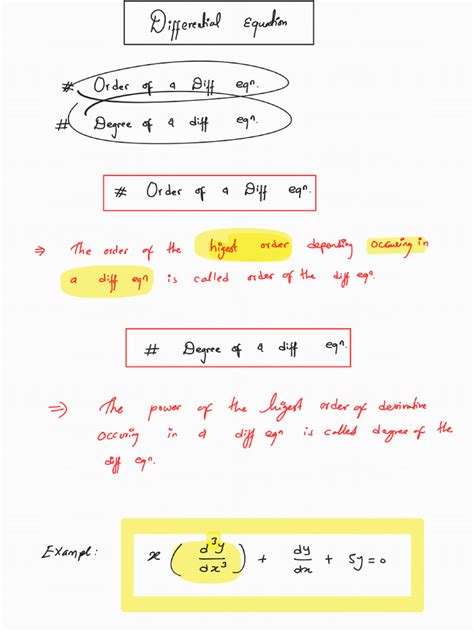 Differential Equation
# Order of a Diff eqn.
# Degree of a diff eqn.
# Order of a Diff eqn.
⇒ The order of the higest order depending occuring in
a diff eqn is called order of the diff eqn.
# Degree of a diff eqn.
⇒ The power of the higest order of derivative
occuring in a diff eqn is called degree of the
diff eqn.
Exampl: x (d³y/dx³) + dy/dx + 5y = 0